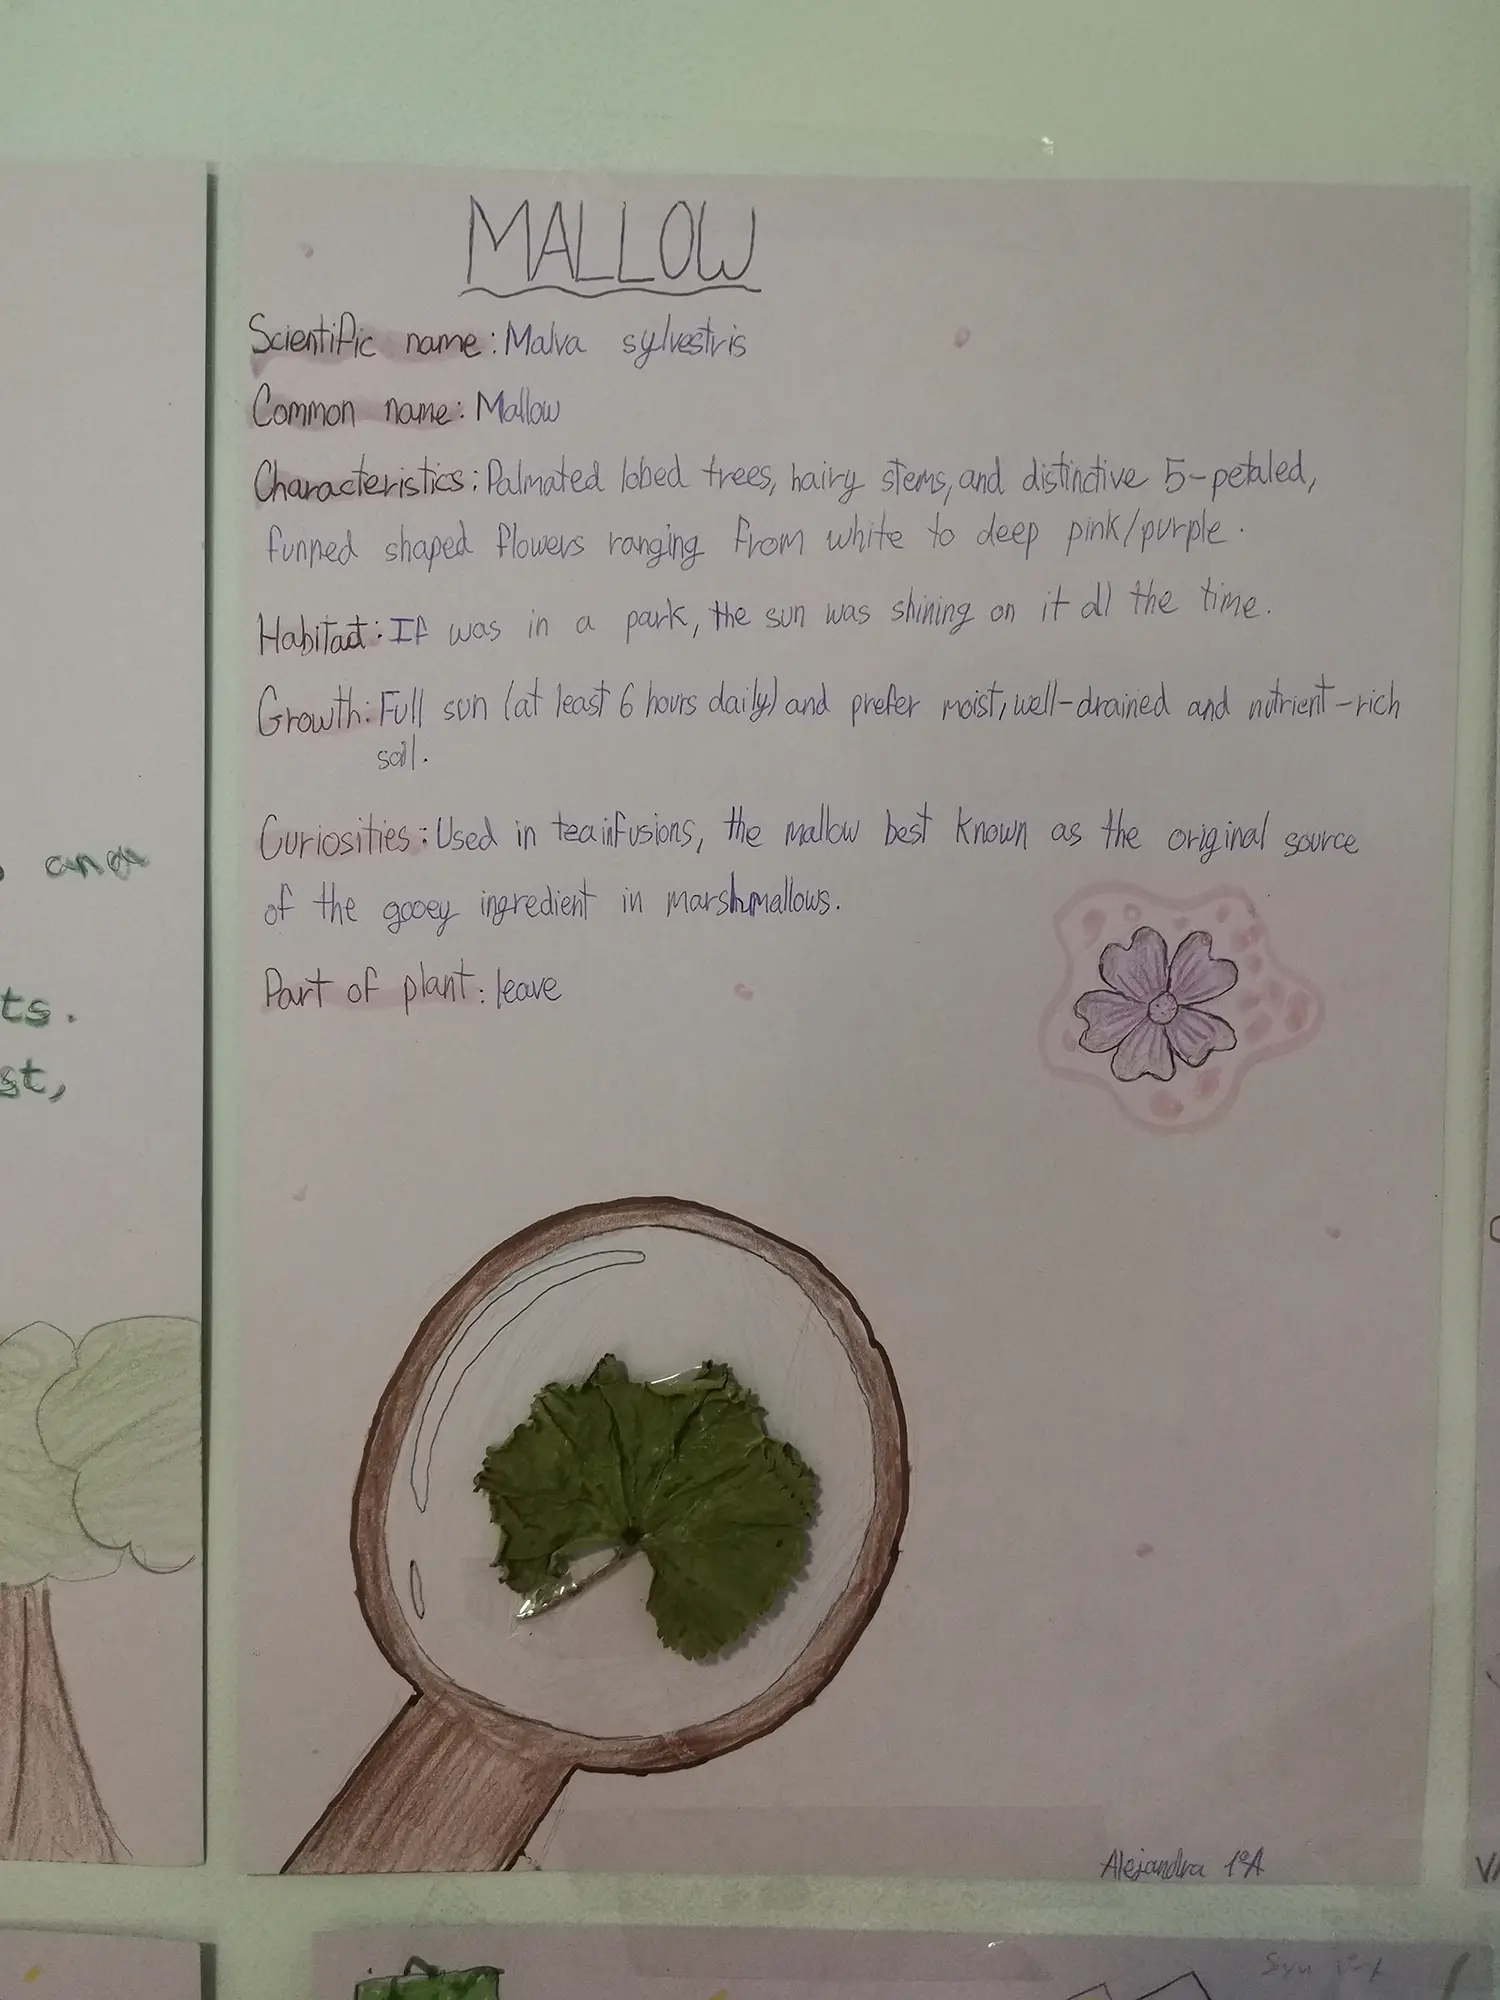 MALLOW
Scientific name: Malva sylvestris
Common name: Mallow
Characteristics: Palmated lobed trees, hairy stems, and distinctive 5-petaled,
funned shaped flowers ranging from white to deep pink/purple.
Habitad: If was in a park, the sun was shining on it all the time.
Growth: Full sun (at least 6 hours daily) and prefer moist, well-drained and nutrient-rich
soil.
Curiosities: Used in teainfusions, the mallow best known as the original source
of the gooey ingredient in marshmallows.
Part of plant: leave
Alejandra 1ºA
and
ts.
st,